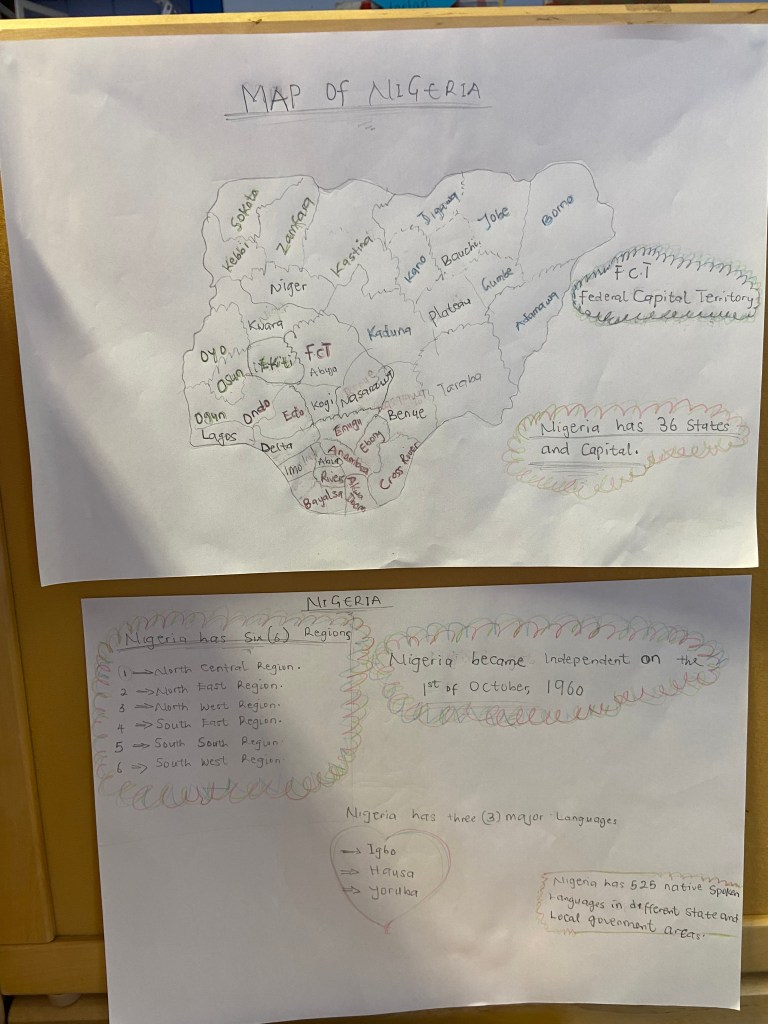 MAP OF NIGERIA
Sokoto
Zamfara
Kebbi
Kastina
Jigawa
Yobe
Borno
Kano
Bauchi
Gumbe
Niger
Plateau
Adamawa
Kwara
Kaduna
Oyo
Osun
Ekiti
FCT
Abuja
Taraba
Ogun
Ondo
Edo
Kogi
Nasarawa
Lagos
Delta
Enugu
Benue
Ebony
Imo
Anambra
Abia
Cross River
River
Bayalsa
Akwa
Ibom
F.C.T
Federal Capital Territory
Nigeria has 36 States
and Capital.
NIGERIA
Nigeria has Six (6) Regions
1 → North Central Region.
2 → North East Region.
3 ⇒ North West Region.
4 ⇒ South East Region.
5 ⇒ South South Region.
6 ⇒ South West Region
Nigeria became independent on the
1st of October, 1960
Nigeria has three (3) major Languages
→ Igbo
⇒ Hausa
⇒ Yoruba
Nigeria has 525 native Spoken
Languages in different State and
Local government areas.